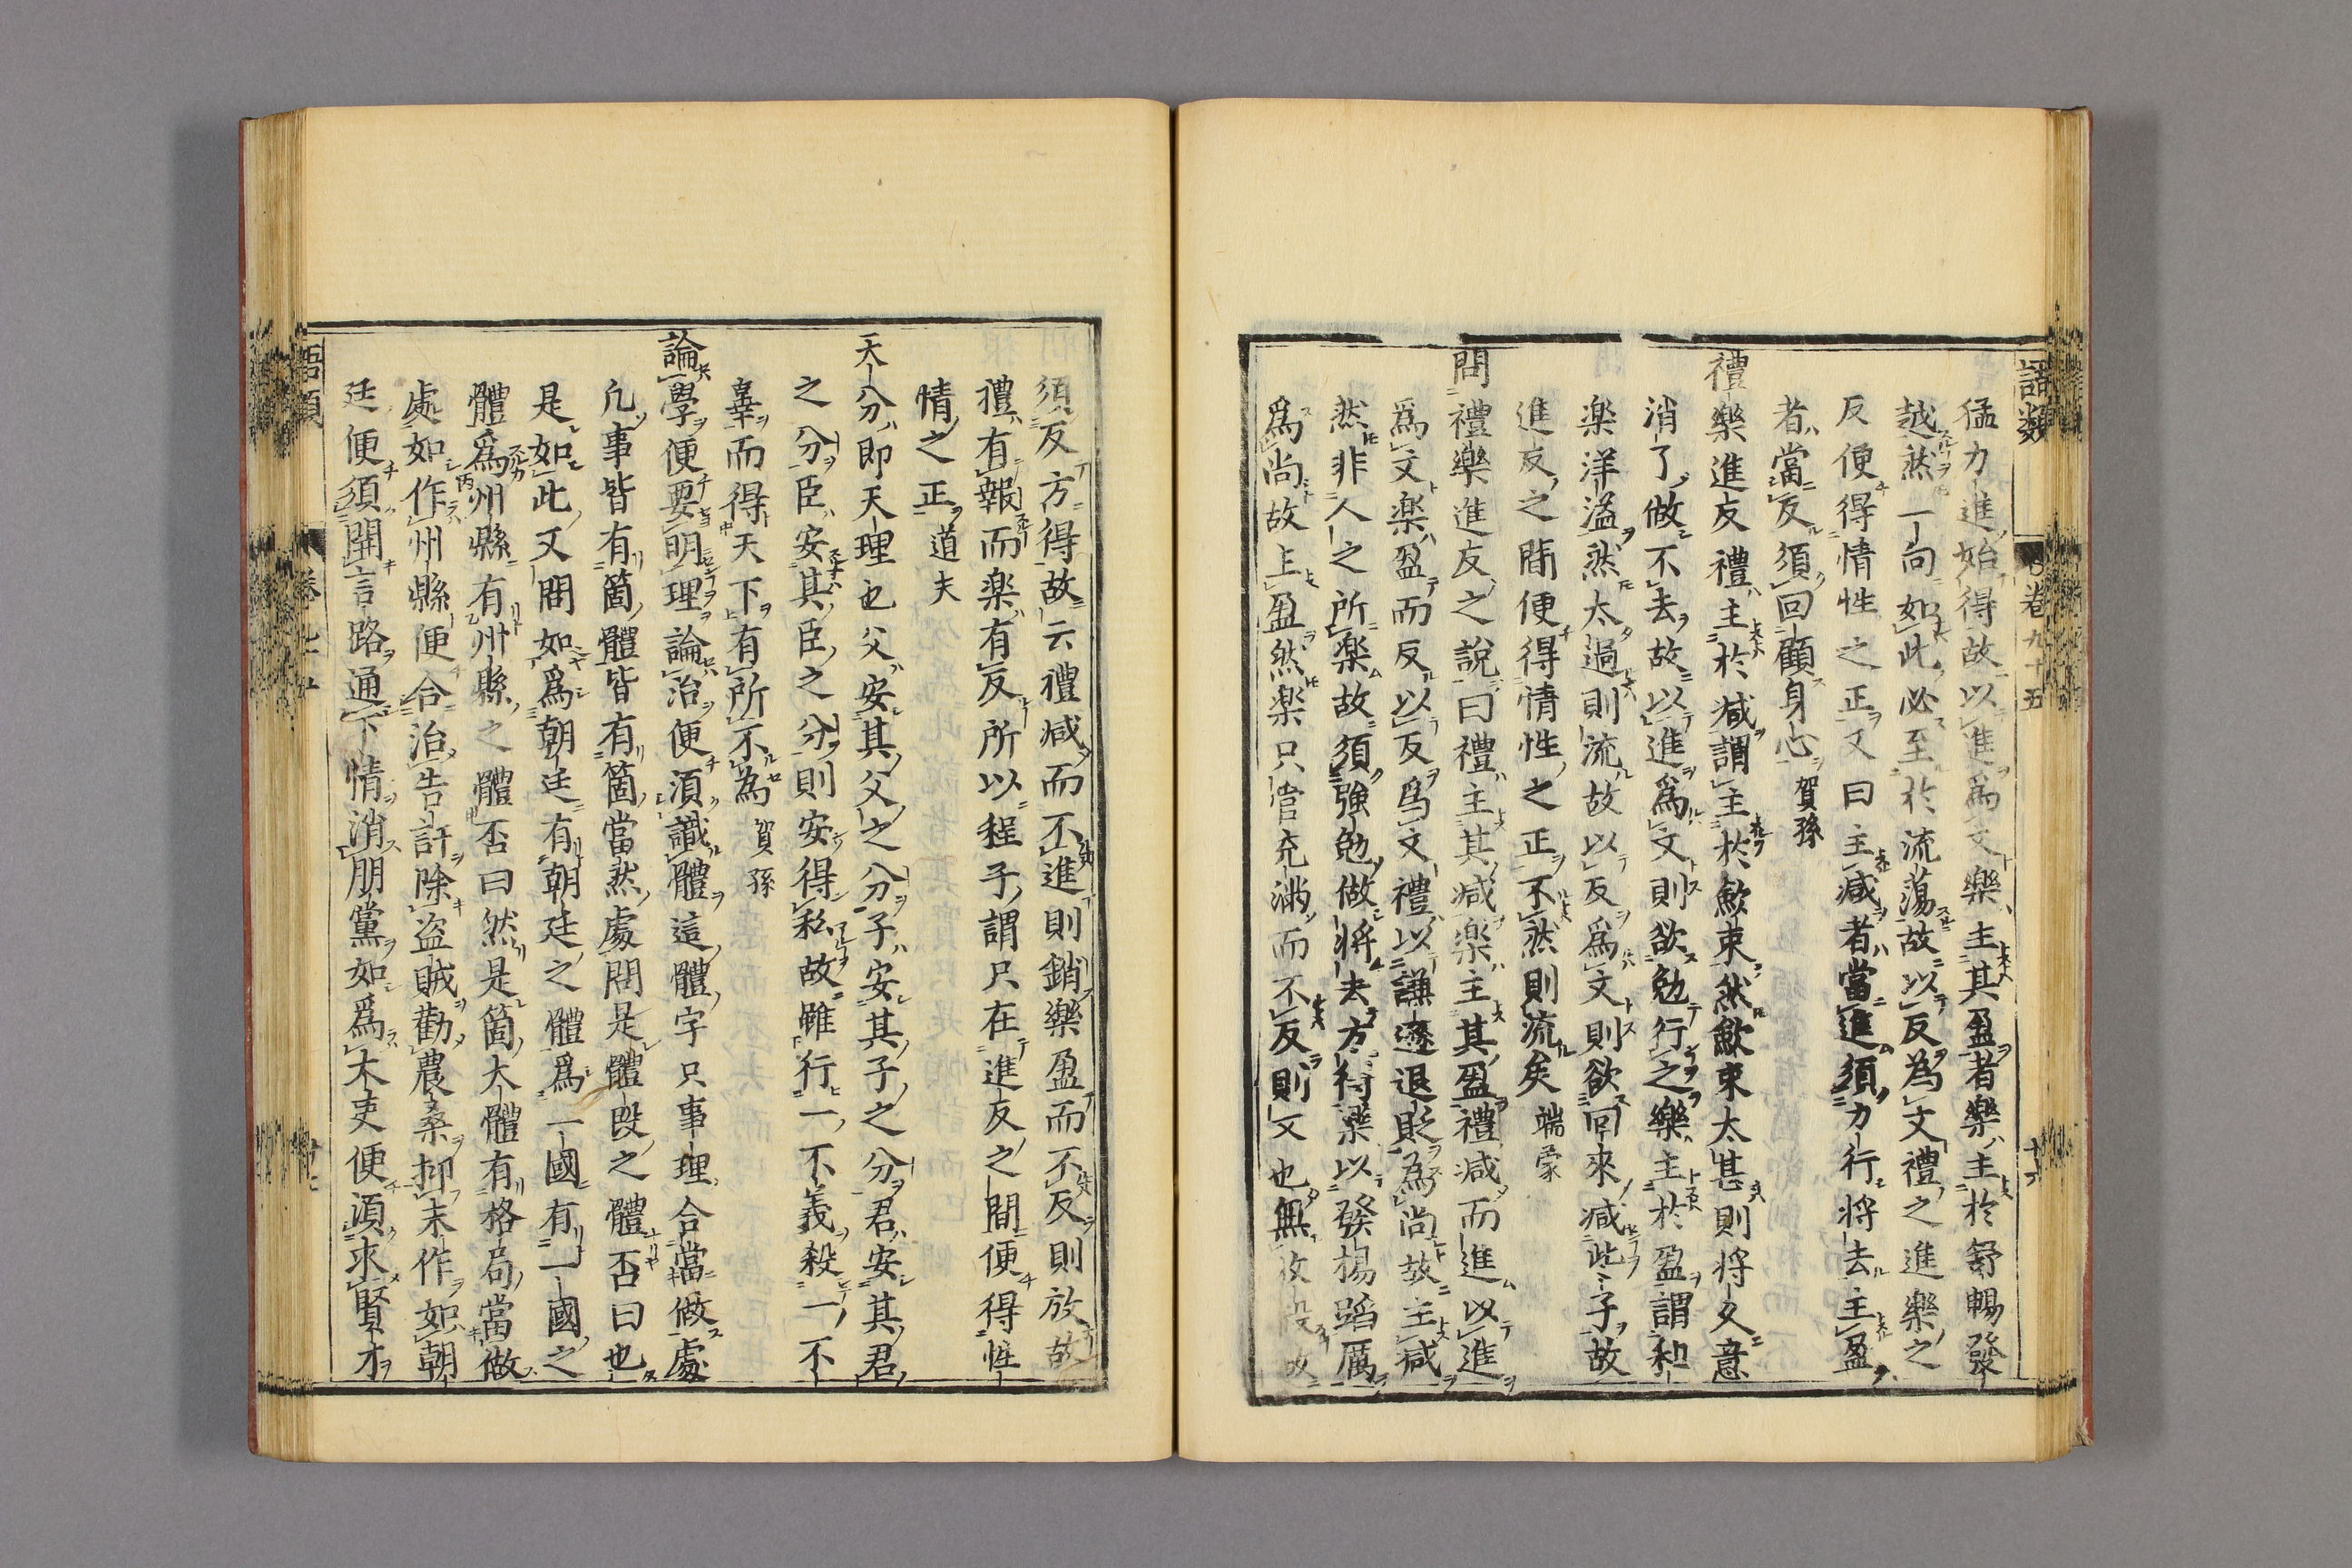 語類
卷九十五
十六
猛力進始得故以進爲文樂主其盈者樂主於舒暢發
越然一向如此必至於流蕩故以反為文禮之進樂之
反便得情性之正又曰主减者當進須力行将去主盈
者當反須回顧身心賀孫
禮樂進反禮主於减謂主於歛束然歛束太甚則将久意
消了做不去故以進爲文則欲勉行之樂主於盈謂和
楽洋溢然太過則流故以反爲文則欲回來减些子故
進反之間便得情性之正不然則流矣端蒙
問禮樂進反之說曰禮主其减楽主其盈禮减而進以進
爲文楽盈而反以反爲文禮以謙遜退貶為尚故主减
然非人之所楽故須強勉做将去方得樂以發揚蹈厲
爲尚故主盈然楽只管充滿而不反則文也無收殺故
須反方得故云禮减而不進則銷樂盈而不反則放故
禮有報而楽有反所以程子謂只在進反之間便得性
情之正道夫
天分即天理也父安其父之分子安其子之分君安其君
之分臣安其臣之分則安得私故雖行一不義殺一不
辜而得天下有所不為賀孫
論學便要明理論治便須識體這體字只事理合當做處
凡事皆有箇體皆有箇當然處問是體段之體否曰也
是如此又問如爲朝廷有朝廷之體爲一國有一國之
體爲州縣有州縣之體否曰然是箇大體有格局當做
處如作州縣便合治告訐除盗賊勸農桑抑末作如朝
廷便須開言路通下情消朋黨如爲大吏便須求賢才
語類